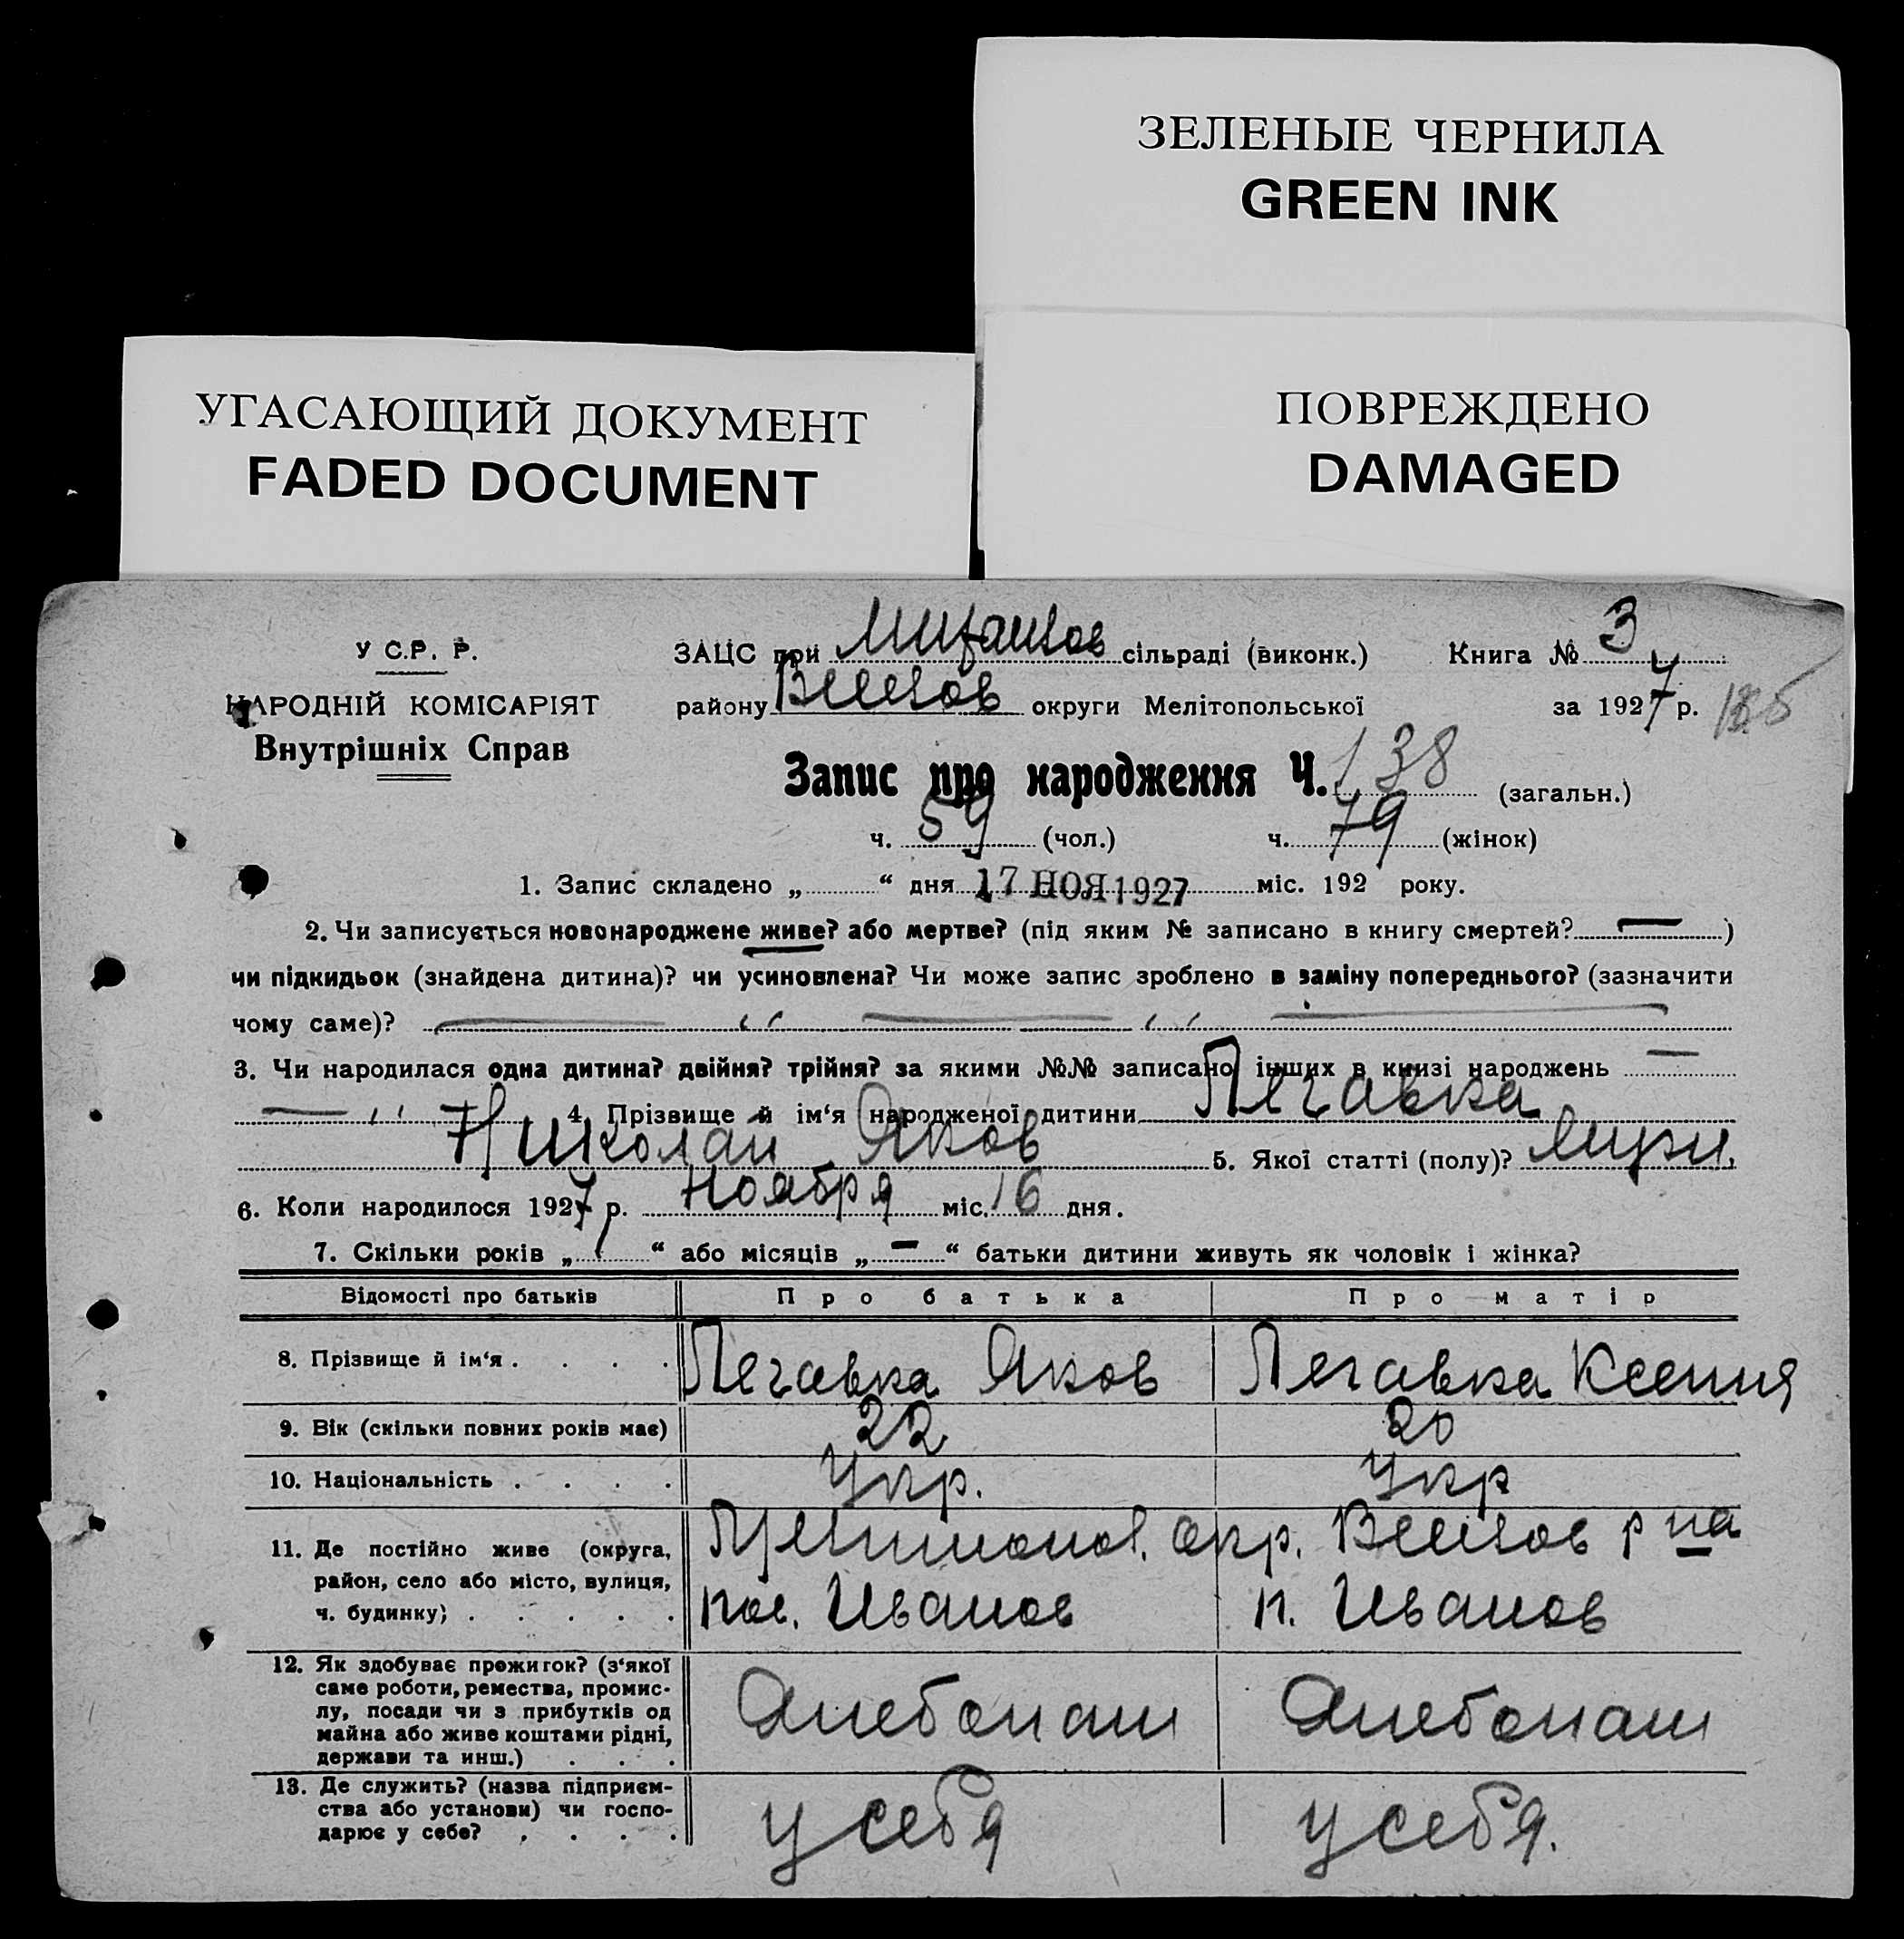 ЗЕЛЕНЫЕ ЧЕРНИЛА
GREEN INK
УГАСАЮЩИЙ ДОКУМЕНТ
FADED DOCUMENT
ПОВРЕЖДЕНО
DAMAGED
У С.Р. Р.
НАРОДНІЙ КОМІСАРІЯТ
Внутрішніх Справ
ЗАЦС при сільраді (виконк.) Книга № 3
району округи Мелітопольської за 1927 р.
Запис про народження Ч. 138 (загальн.)
ч. 59 (чол.) ч. 79 (жінок)
1. Запис складено „ “ дня 17 НОЯ 1927 міс. 192 року.
2. Чи записується новонароджене живе? або мертве? (під яким № записано в книгу смертей? — )
чи підкидьок (знайдена дитина)? чи усиновлена? Чи може запис зроблено в заміну попереднього? (зазначити
чому саме)? — " — " —
3. Чи народилася одна дитина? двійня? трійня? за якими №№ записано інших в книзі народжень —
— " 4. Прізвище й ім‘я народженої дитини Легавка
Николай Яков 5. Якої статті (полу)?
6. Коли народилося 1927 р. Ноября міс. 16 дня.
7. Скільки років „ “ або місяців „ - “ батьки дитини живуть як чоловік і жінка?
Відомості про батьків Про батька Про матір
8. Прізвище й ім‘я . . . . Легавка Яков Легавка Ксения
9. Вік (скільки повних років має) 22 20
10. Національність . . . . Укр. Укр
11. Де постійно живе (округа, окр. р на
район, село або місто, вулиця,
ч. будинку) . . . . . пос. Иванов п. Иванов
12. Як здобуває прожиток? (з‘якої
саме роботи, ремества, промис-
лу, посади чи з прибутків од
майна або живе коштами рідні,
держави та инш.) . . .
13. Де служить? (назва підприєм-
ства або установи) чи госпо-
дарює у себе? . . . . у себя у себя.